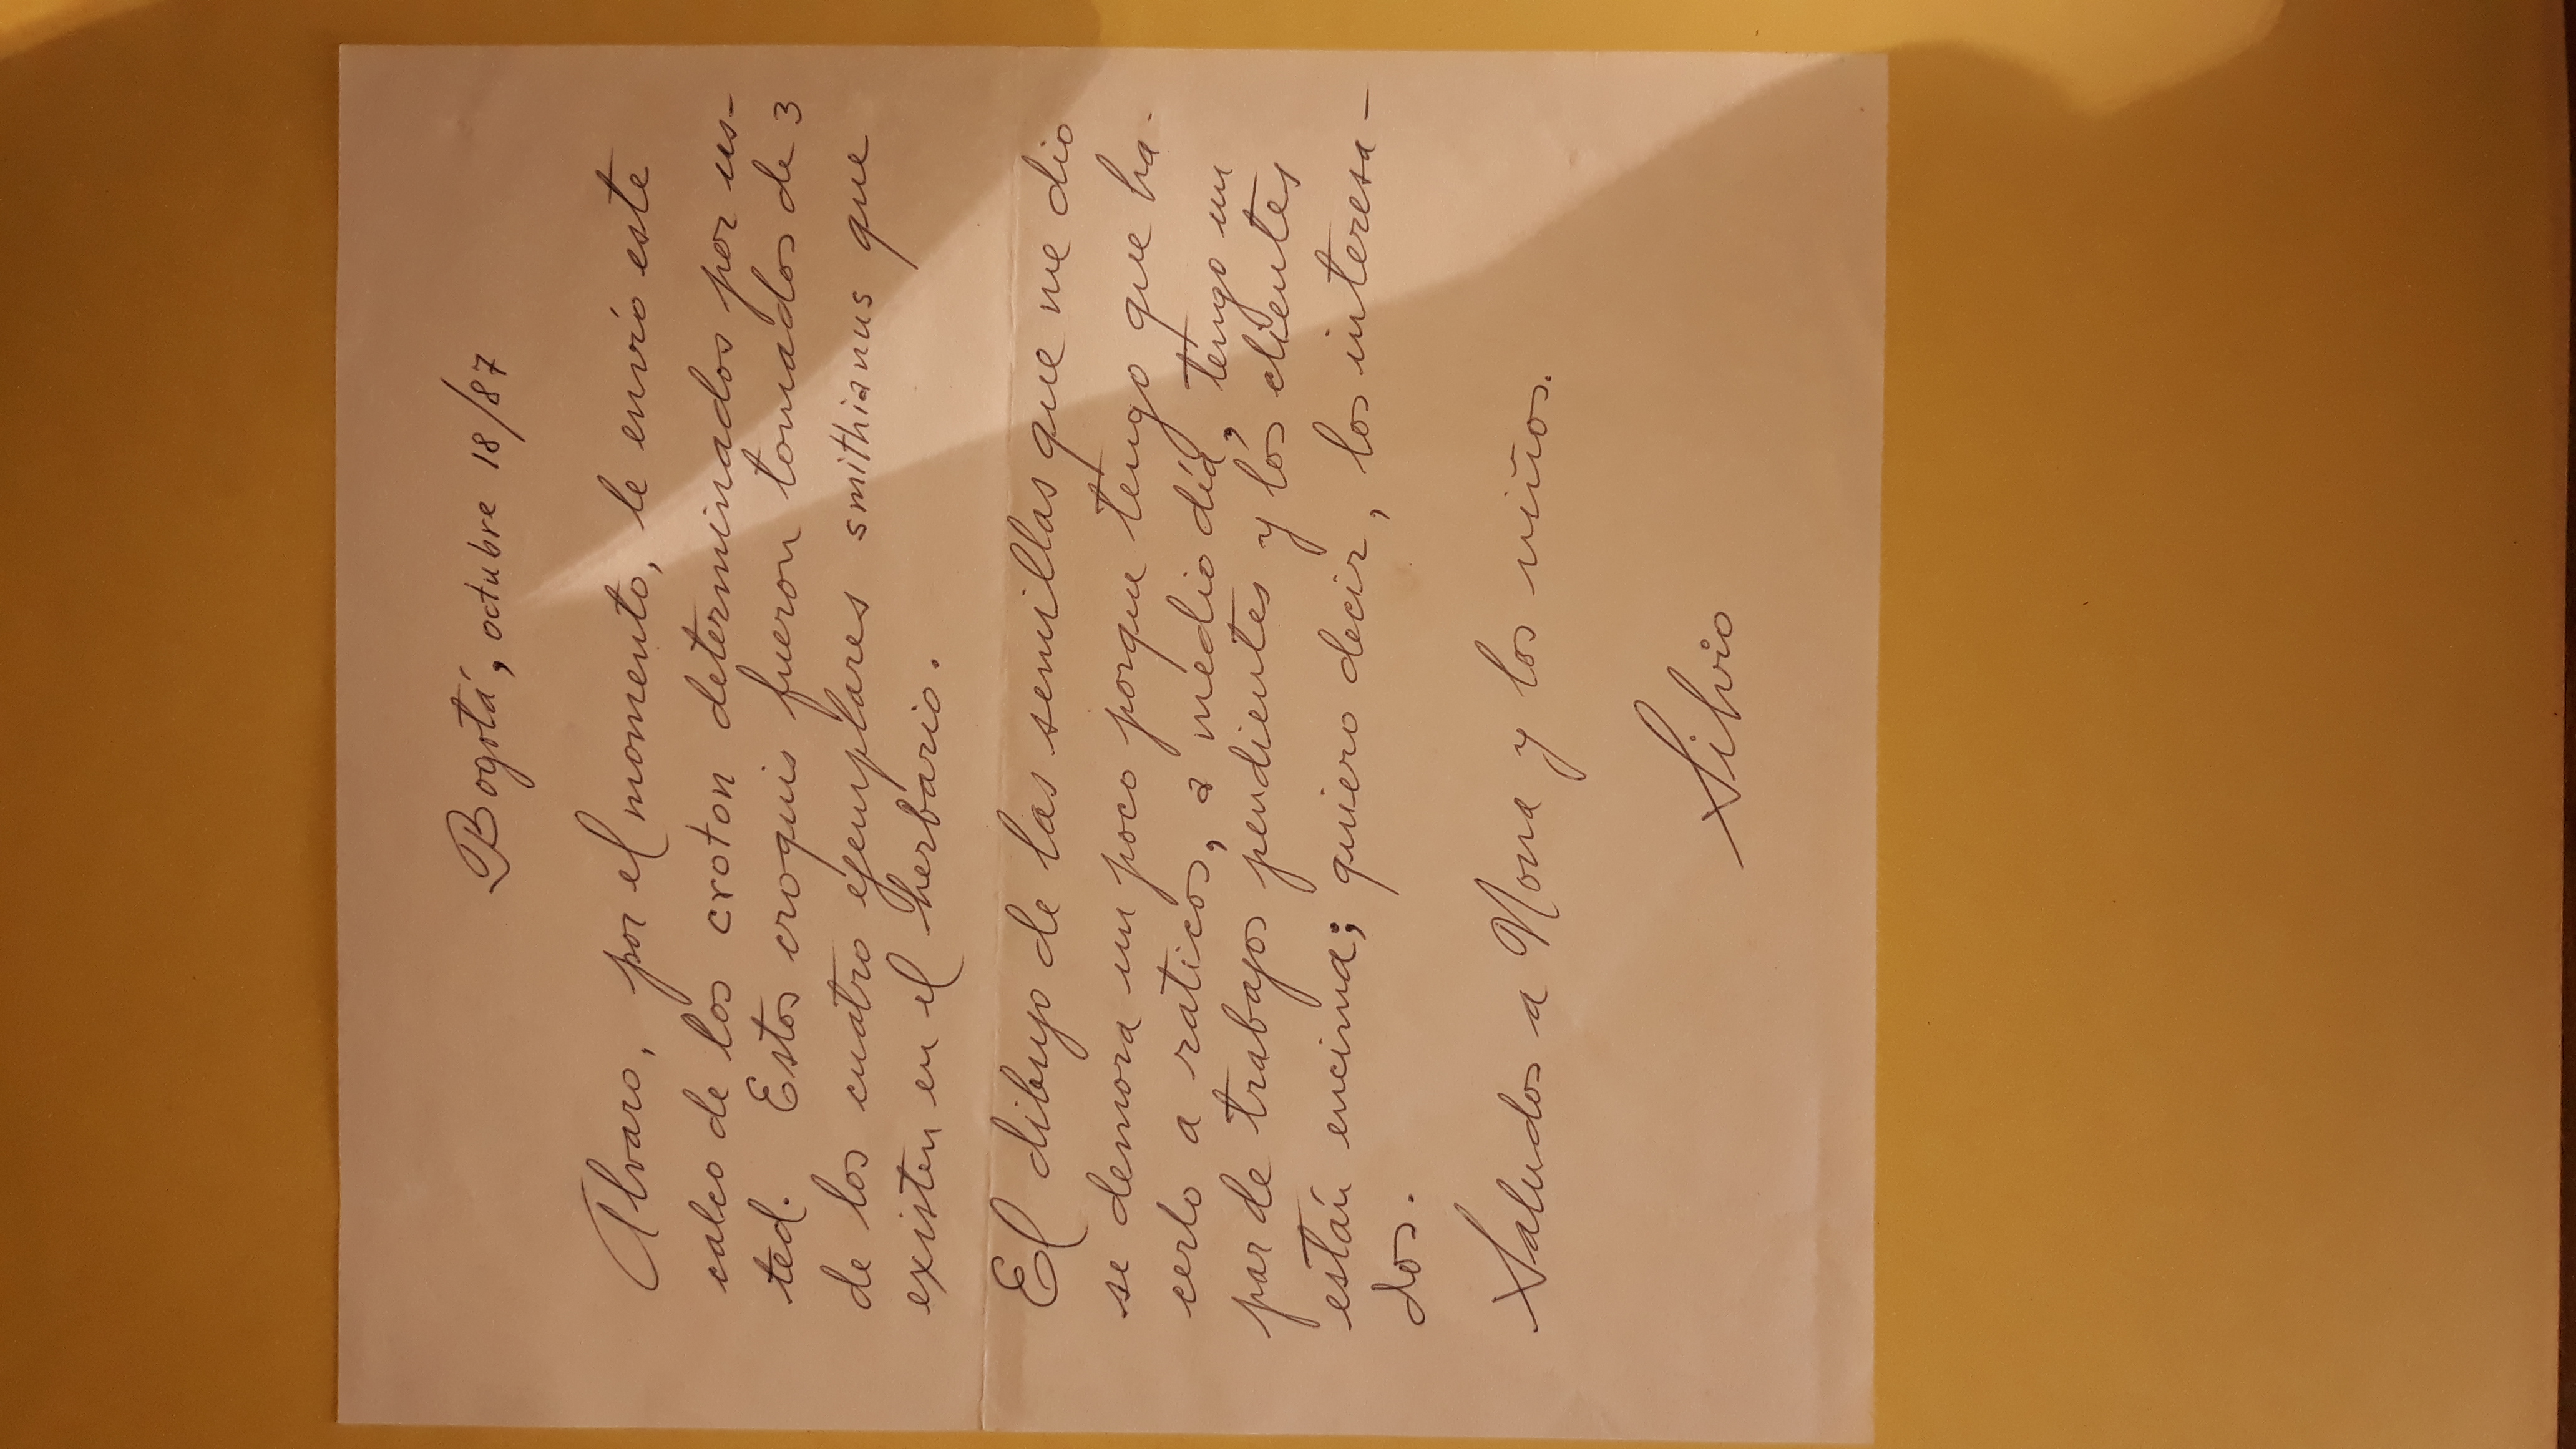 Bogotá, octubre 18/87
Alvaro, por el momento, le envío este
calco de los croton determinados por us-
ted. Estos croquis fueron tomados de 3
de los cuatro ejemplares smithianus que
existen en el herbario.
El dibujo de las semillas que me dio
se demora un poco porque tengo que ha-
cerlo a raticos, a medio día, tengo un
par de trabajos pendientes y los clientes
están encima; quiero decir, los interesa-
dos.
Saludos a Nona y los niños.
Silvio